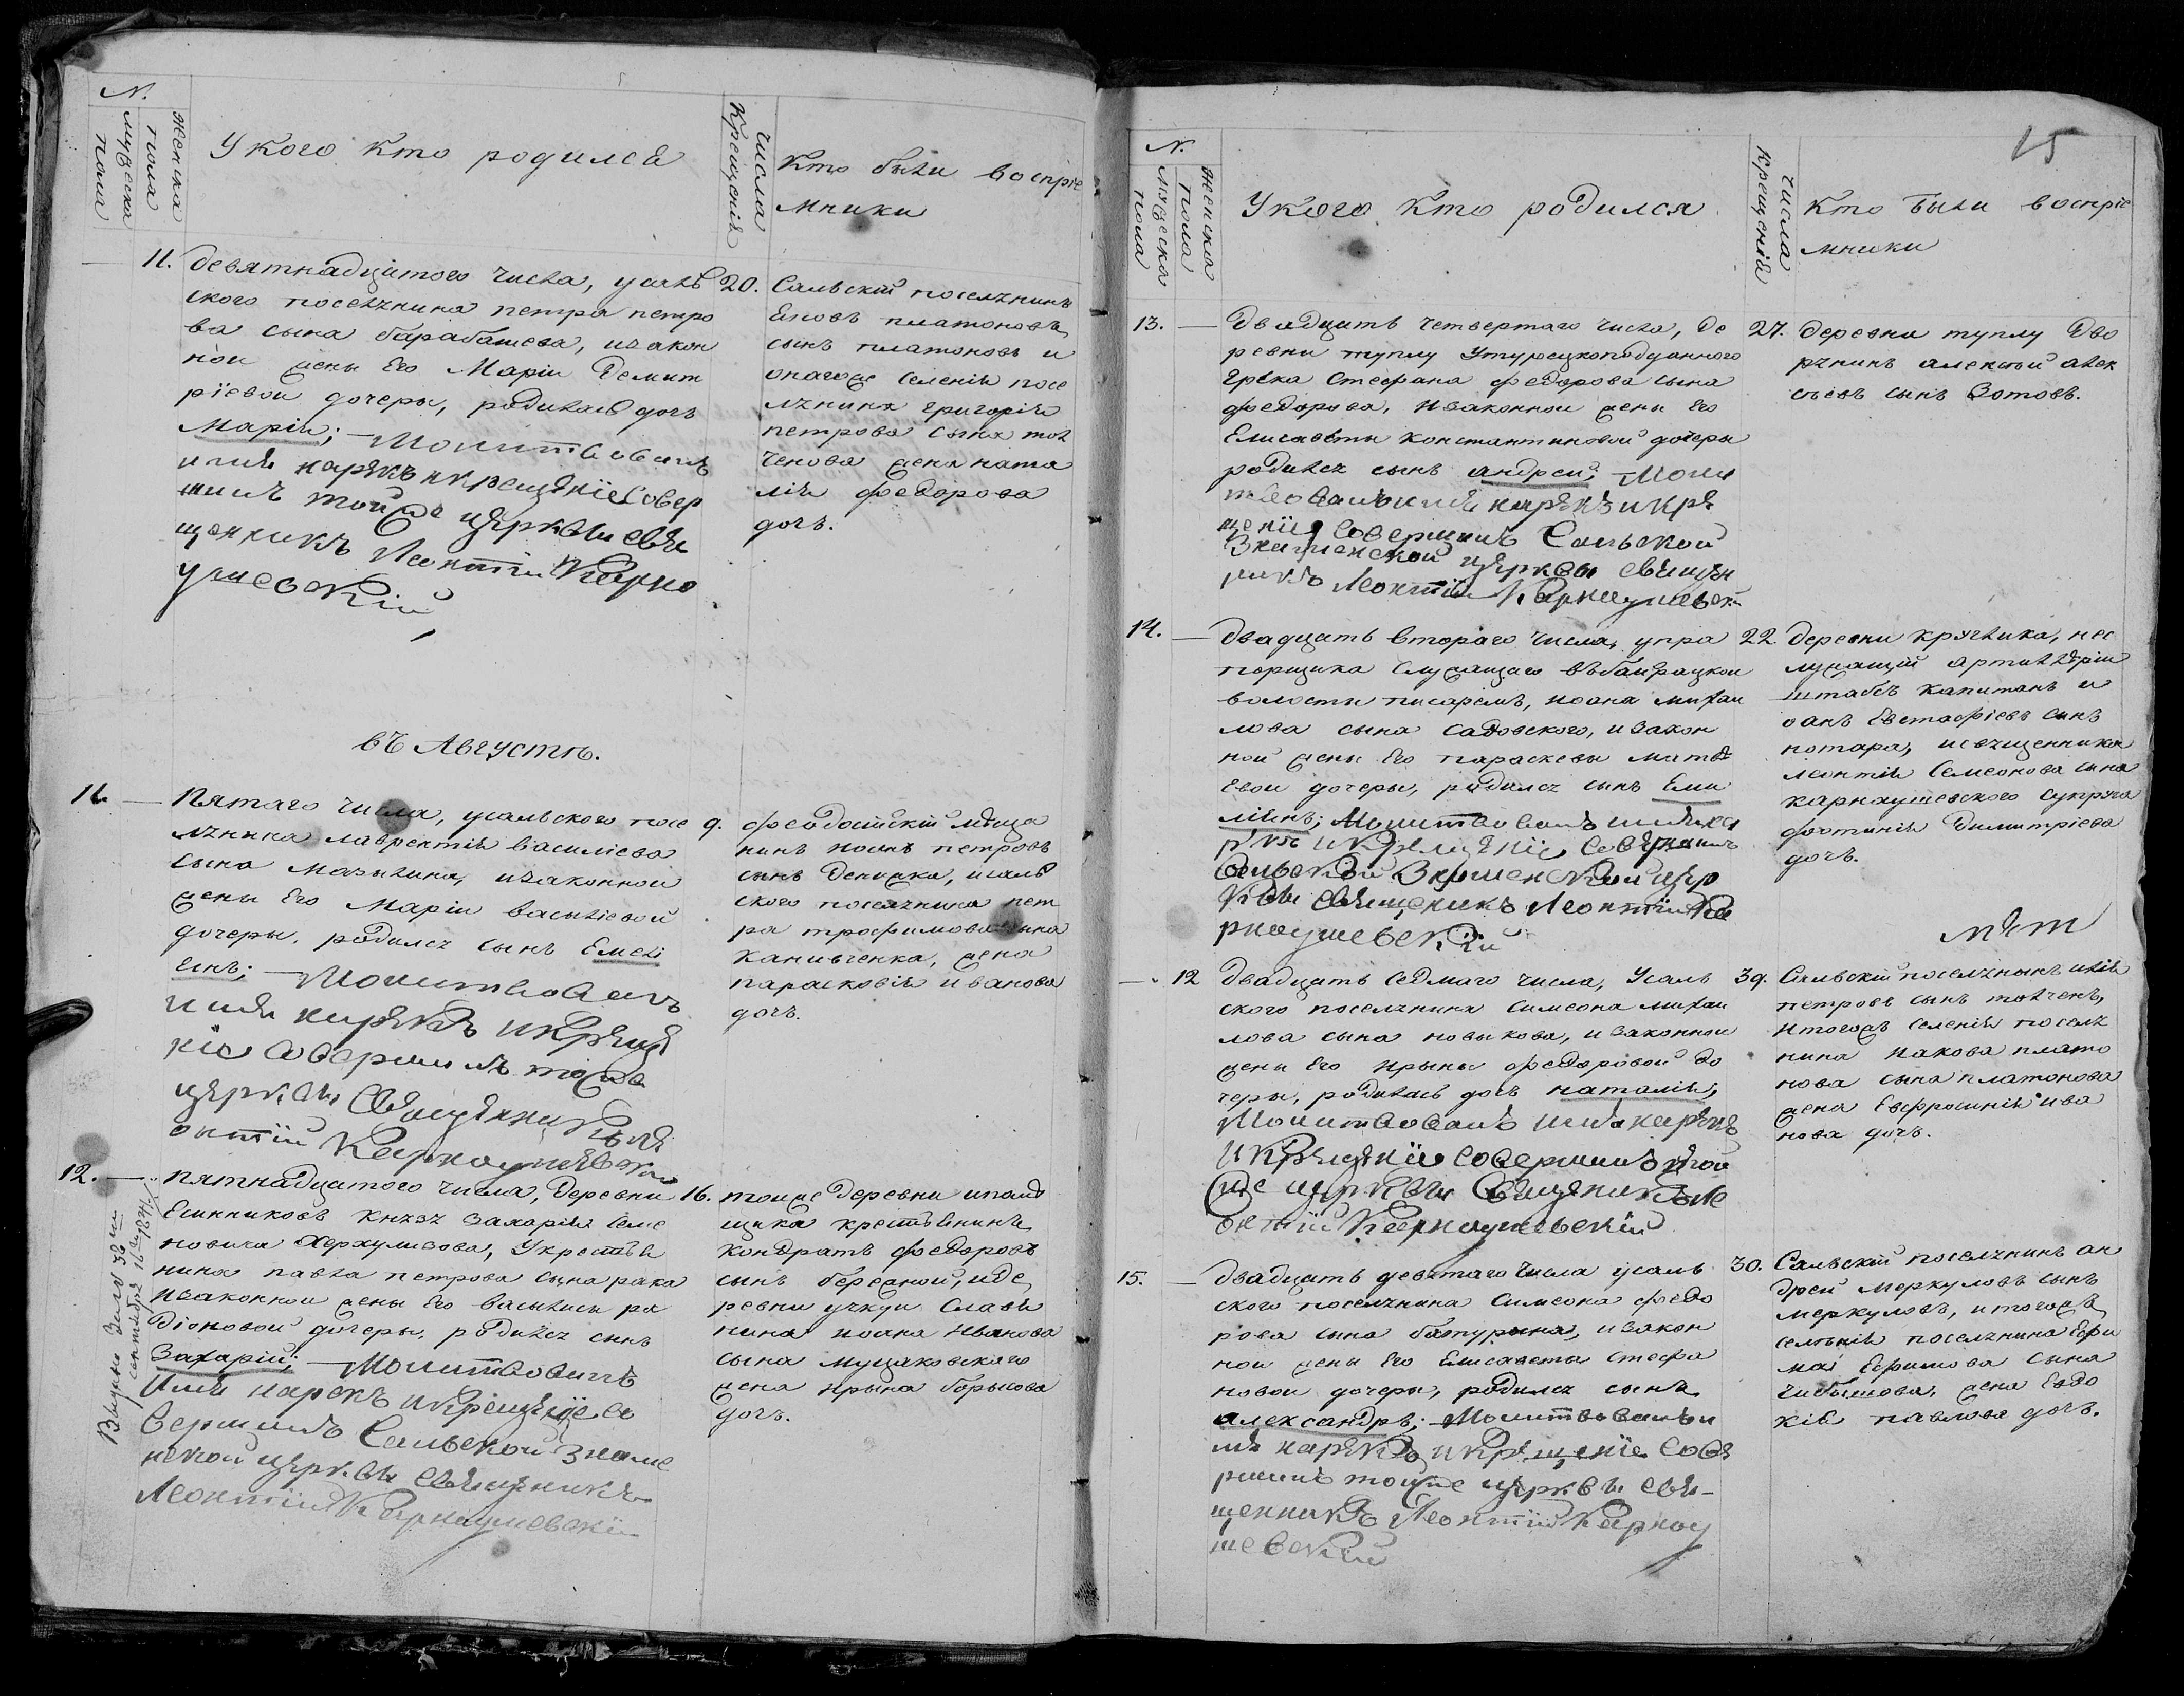 N.
мужеска пола
женска пола
У кого кто родился
числа крещенія
Кто были воспріе
мники
11. девятнадцатого числа, усаль
ского поселянина петра петро
ва сына барабашева, изакон
ной жены его Маріи демит
ріевой дочеры, родилась дочь
Марія; Молитвовалъ
имя нарекъ и крещеніе совер
шилъ тойже церкви свя
щенникъ Леонтій Карна
ушевскій
20. Сальскій поселянинъ
платоновъ
сынъ платоновъ и
онагоже селенія посе
лянина григорія
петрова сына тол
ченова жена ната
лія федорова
дочь.
въ Августѣ.
11. Пятаго числа, усальского посе
лянина лаврентія василіева
сына мазыкина, изаконной
жены его Маріи василіевой
дочеры, родился сынъ Емелі
анъ; Молитвовалъ
имя нарекъ и креще
ніе совершилъ тойже
церкви священникъ Ле
онтій Карнаушевскій
9. феодосійскій мѣща
нинъ иоанъ петровъ
сынъ Дениска, исаль
ского поселянина пет
ра трофимова сына
канивченка, жена
парасковія иванова
дочь.
12. пятнадцатого числа, деревни
князя Захарія Семе
новича Херхулизова, укрестья
нина павла петрова сына рака
изаконной жены его василисы ра
діоновой дочеры, родился сынъ
Захарій; Молитвовалъ
имя нарекъ и крещеніе со
вершилъ Сальской Знаме
нской церкви священникъ
Леонтій Карнаушевскій
16. тоиже деревни ипомѣ
щика крестьянинъ
кондратъ федоровъ
сынъ бережной, иде
ревни учкуи Славя
нина иоана Иванова
сына мущаковского
жена ирына борысова
дочь.
15
N.
мужеска пола
женска пола
У кого кто родился
числа крещенія
Кто были воспріе
мники
13. двадцать четвертаго числа, де
ревни туплу Утурецкоподданного
Грека Стефана федорова сына
федорова, изаконной жены его
Елисаветы константиновой дочеры
родился сынъ андрей; Моли
твовалъ имя нарекъ и кре
щеніе совершилъ Сальской
Знаменской церкви священ
никъ Леонтій Карнаушевскій
27. деревни туплу дво
рянинъ алексій алек
сѣевъ сынъ Зотовъ.
14. двадцать втораго числа, упра
порщика служащаго въбаирацкой
волости писаремъ, иоана михаи
лова сына садовского, изакон
ной жены его параскевы матвѣ
евой дочеры, родился сынъ Еми
ліянъ; Молитвовалъ имя на
рекъ и крещеніе совершилъ
Сальской Знаменской цер
кви священикъ Леонтій Ка
рнаушевскій
22. деревни кручика, нес
лужащій артилѣріи
штабсъ капитанъ и
оанъ Евстафіевъ сынъ
потара, исвященника
леонтія Семеонова сына
карнаушевского супруга
фотинія димитріева
дочь.
12 двадцать седмаго числа, Усаль
ского поселянина симеона михаи
лова сына новыкова, изаконной
жены его ирыны федоровой до
черы, родилась дочь наталія;
Молитвовалъ имя нарекъ
и крещеніе совершилъ той
же церкви священикъ Ле
онтій Карнаушевскій
39. Сальскій поселянинъ илія
петровъ сынъ толченъ,
итогожъ селенія поселя
нина иакова плато
нова сына платонова
жена Евфросинія ива
нова дочь.
15. двадцать девятаго числа усаль
ского поселянина симеона федо
рова сына батурына, изакон
ной жены его Елисаветы стефа
новой дочеры, родился сынъ
александръ; Молитвовалъ и
мя нарекъ и крещеніе сове
ршилъ тойже церкви свя-
щенникъ Леонтій Карнау
шевскій
30. Сальскій поселянинъ ан
дрей меркуловъ сынъ
меркуловъ, итогожъ
селенія поселянина Ефи
ма Ефимова сына
жена Евдо
кія павлова дочь.